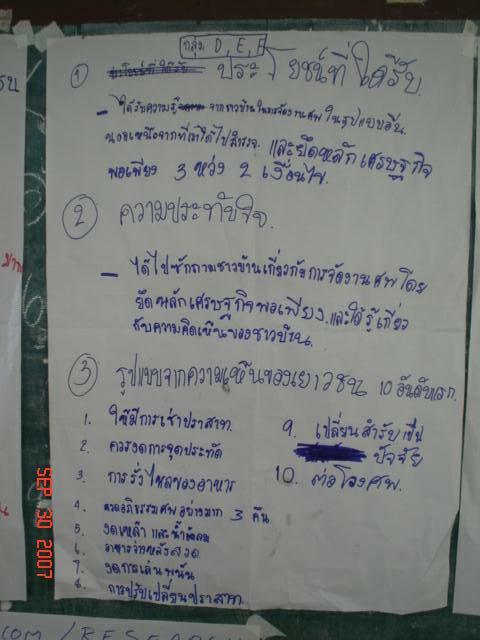 กลุ่ม D, E, F
① ประโยชน์ที่ได้รับ.
- ได้รับความรู้ จากชาวบ้านในการจัดงานศพ ในรูปแบบอื่น
นอกเหนือจากที่เราได้ไปสำรวจ. และยึดหลักเศรษฐกิจ
พอเพียง 3 ห่วง 2 เงื่อนไข.
② ความประทับใจ.
- ได้ไปซักถามชาวบ้านเกี่ยวกับการจัดงานศพโดย
ยึดหลักเศรษฐกิจพอเพียง.และได้รู้เกี่ยว
กับความคิดเห็นของชาวบ้าน.
③ รูปแบบจากความเห็นของเยาวชน 10 อันดับแรก.
1. ใช้มีการเช่าปราสาท.
2. ควรงดการจุดประทัด
3. การรั่วไหลของอาหาร
4. สวดอภิธรรมศพอย่างมาก 3 คืน
5. งดเหล้า และน้ำอัดลม
6. อาหารว่างหลังสวด.
7. งดการเล่นพนัน
8. การปรับเปลี่ยนปราสาท
9. เปลี่ยนสำรับเป็น
ปัจจัย
10. ต่อโลงศพ.
SEP 30 2007
.COM / RESEARCH